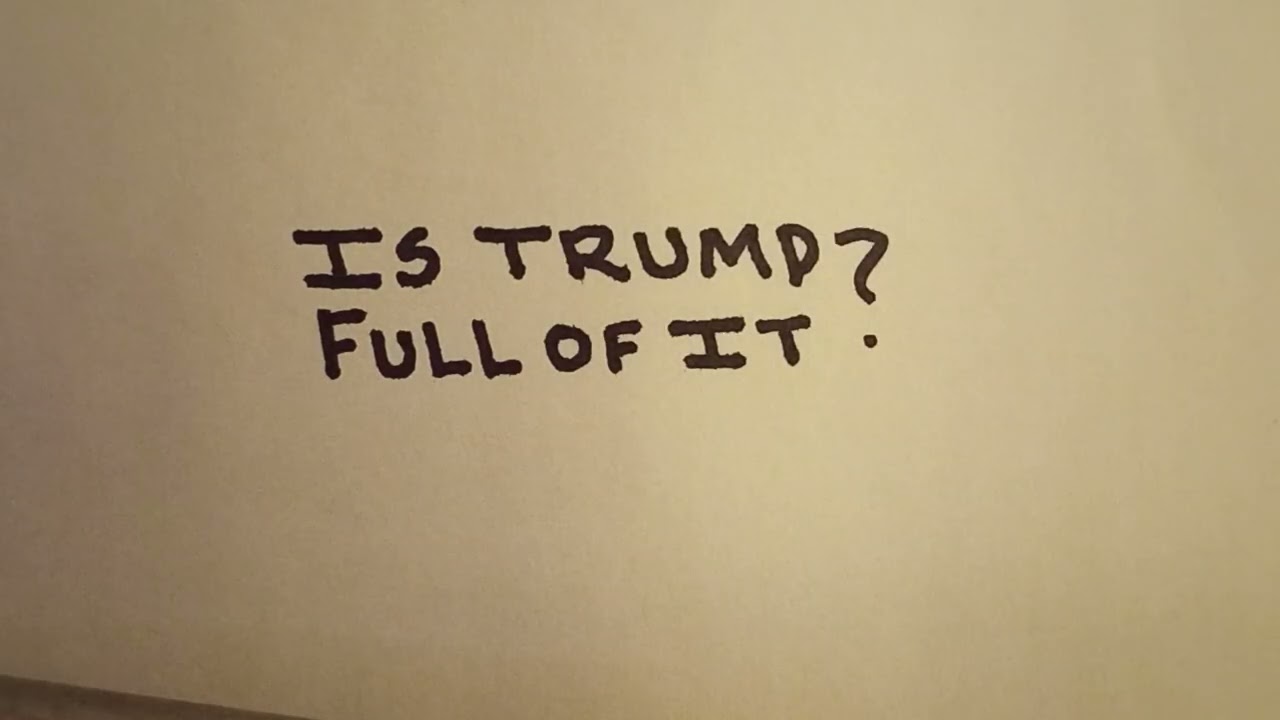 IS TRUMP?
FULL OF IT